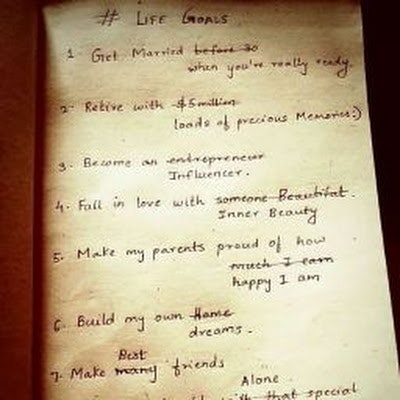 # LIFE GOALS
1. Get Married before 30
when you're really ready.
2. Retire with $5 million
loads of precious Memories:)
3. Become an entrepreneur
Influencer.
4. Fall in love with someone Beautiful.
Inner Beauty
5. Make my parents proud of how
much I earn
happy I am
6. Build my own Home
dreams.
Best
7. Make many friends
Alone
with that special